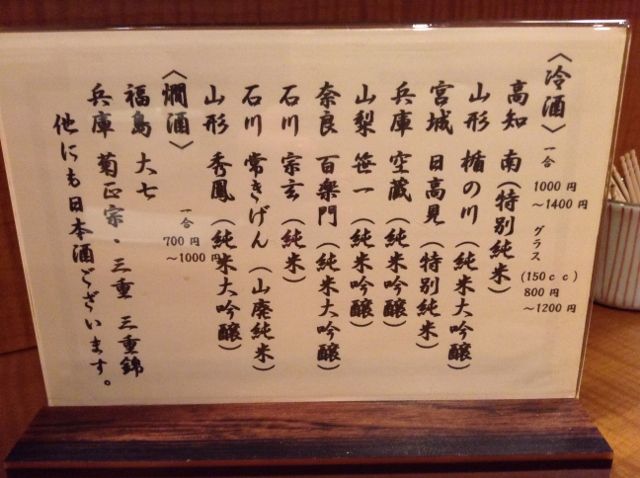 〈冷酒〉 一合 1000円〜1400円 グラス(150cc) 800円〜1200円
高知 南(特別純米)
山形 楯の川(純米大吟醸)
宮城 日高見(特別純米)
兵庫 空蔵(純米吟醸)
山梨 笹一(純米吟醸)
奈良 百楽門(純米大吟醸)
石川 宗玄(純米)
石川 常きげん(山廃純米)
山形 秀鳳(純米大吟醸)
〈燗酒〉 一合 700円〜1000円
福島 大七
兵庫 菊正宗・三重 三重錦
他にも日本酒ございます。